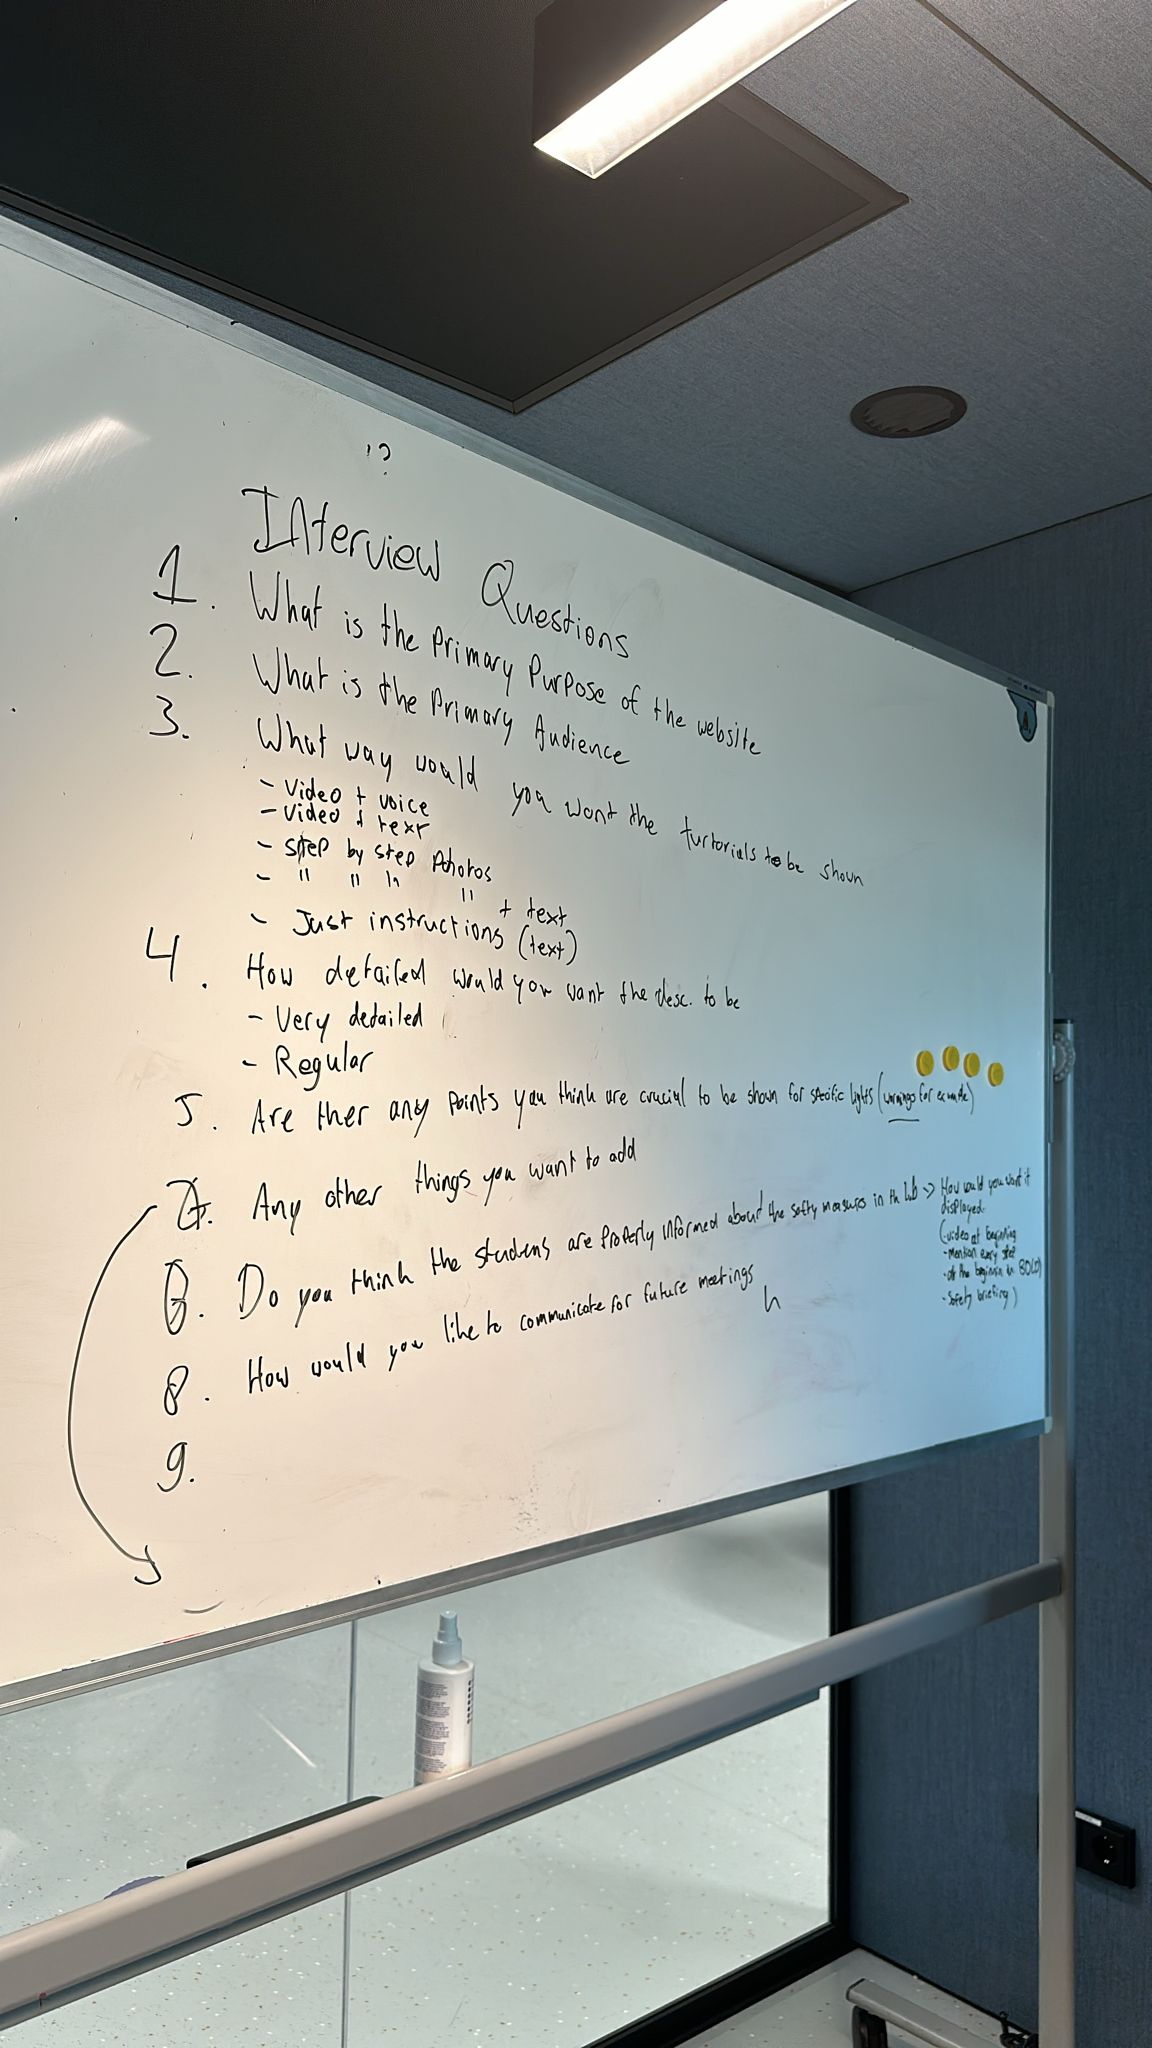 ?
Interview Questions
1. What is the Primary Purpose of the website
2. What is the Primary Audience
3. What way would you want the turtorials to be shown
- Video + voice
- Video + text
- Step by step Photos
- " " " " + text
- Just instructions (text)
4. How detailed would you want the desc. to be
- Very detailed
- Regular
5. Are ther any Points you think are crucial to be shown for specific lights (warnings for example)
7. Any other things you want to add
6. Do you think the students are Properly informed about the safty measures in the lab -> How would you want it
displayed.
(video at beginning
- mention every step
- at the beginin in BOLD
- Safety briefing)
8. How would you like to communicate for future meetings
h
9.